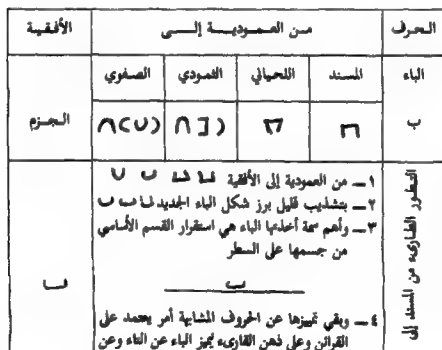 الحرف من العمودية إلى الأفقية
الباء المسند اللحياني الثمودي الصفوي
ب الجزم
التطور الطارىء من المسند إلى
١ــ من العمودية إلى الأفقية
٢ــ بتشذيب قليل برز شكل الباء الجديد
٣ــ وأهم سمة أخذتها الباء هي استقرار القسم الأساسي
من جسمها على السطر
٤ــ وبقي تمييزها عن الحروف المشابهة أمر يعتمد على
القرائن وعلى ذهن القارىء ليميز الباء عن التاء وعن